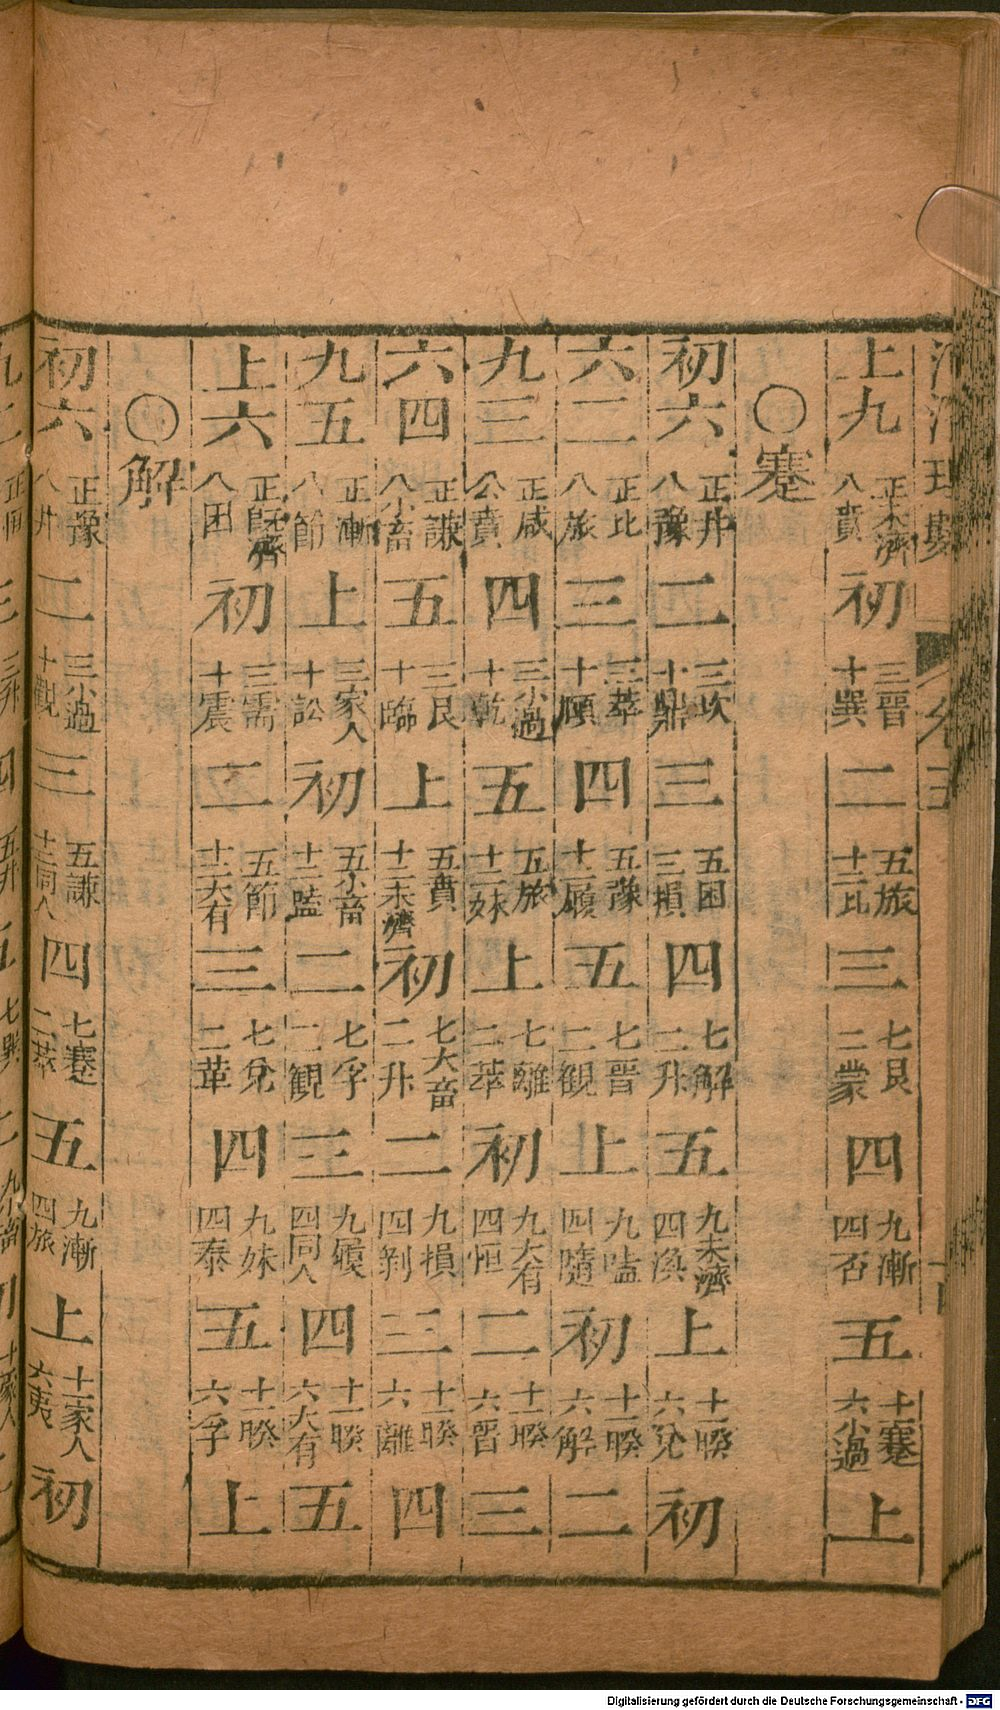 河洛理數 卷五
上九 正未濟 八賁 初 三晉 十巽 二 五旅 十二比 三 七艮 二蒙 四 九漸 四否 五 十一蹇 六小過 上
○蹇
初六 正井 八豫 二 三坎 十鼎 三 五困 三損 四 七解 二升 五 九未濟 四渙 上 十一睽 六兌 初
六二 正比 八旅 三 三萃 十頤 四 五豫 十二履 五 七晉 二觀 上 九嗑 四隨 初 十一睽 六解 二
九三 正咸 八賁 四 三小過 十乾 五 五旅 十二妹 上 七離 二萃 初 九大有 四恒 二 十一睽 六晉 三
六四 正謙 八小畜 五 三艮 十臨 上 五賁 十二未濟 初 七大畜 二升 二 九損 四剝 三 十一睽 六離 四
九五 正漸 八節 上 三家人 十訟 初 五小畜 十二嗑 二 七孚 二觀 三 九履 四同人 四 十一睽 六大有 五
上六 正既濟 八困 初 三需 十震 二 五節 十二大有 三 七兌 二萃 四 九妹 四泰 五 十一睽 六孚 上
○解
初六 正豫 八井 二 三小過 十觀 三 五謙 十二同人 四 七蹇 二萃 五 九漸 四旅 上 十一家人 六夷 初
Digitalisierung gefördert durch die Deutsche Forschungsgemeinschaft - DFG